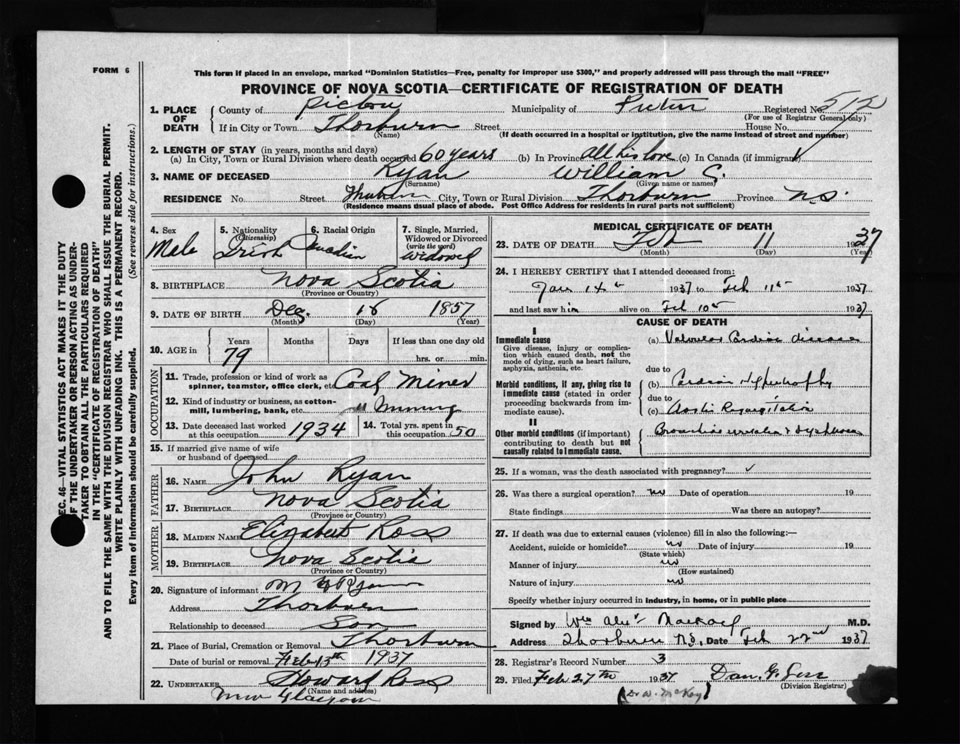 FORM 6
This form if placed in an envelope, marked "Dominion Statistics—Free, penalty for improper use $300," and properly addressed will pass through the mail "FREE"
PROVINCE OF NOVA SCOTIA—CERTIFICATE OF REGISTRATION OF DEATH
SEC. 46—VITAL STATISTICS ACT MAKES IT THE DUTY
OF THE UNDERTAKER OR PERSON ACTING AS UNDER-
TAKER TO OBTAIN ALL THE PARTICULARS REQUIRED
IN THE "CERTIFICATE OF REGISTRATION OF DEATH"
AND TO FILE THE SAME WITH THE DIVISION REGISTRAR WHO SHALL ISSUE THE BURIAL PERMIT.
WRITE PLAINLY WITH UNFADING INK. THIS IS A PERMANENT RECORD.
Every item of information should be carefully supplied. (See reverse side for instructions.)
1. PLACE OF DEATH County of Pictou Municipality of Pictou Registered No. 512
(For use of Registrar General only)
If in City or Town Thorburn Street House No.
(Name) (If death occurred in a hospital or institution, give the name instead of street and number)
2. LENGTH OF STAY (in years, months and days)
(a) In City, Town or Rural Division where death occurred 60 years (b) In Province All his (c) In Canada (if immigrant)
3. NAME OF DECEASED Ryan William C.
(Surname) (Given name or names)
RESIDENCE No. Street Thorburn City, Town or Rural Division Thorburn Province N.S.
(Residence means usual place of abode. Post Office Address for residents in rural parts not sufficient)
4. Sex Male
5. Nationality (Citizenship) Irish
6. Racial Origin Canadian
7. Single, Married, Widowed or Divorced (write the word) Widowed
8. BIRTHPLACE Nova Scotia
(Province or Country)
9. DATE OF BIRTH Dec. 18 1857
(Month) (Day) (Year)
10. AGE in Years Months Days If less than one day old
79 hrs. or min.
OCCUPATION
11. Trade, profession or kind of work as spinner, teamster, office clerk, etc. Coal Miner
12. Kind of industry or business, as cotton-mill, lumbering, bank, etc. Mining
13. Date deceased last worked at this occupation 1934
14. Total yrs. spent in this occupation 50
15. If married give name of wife or husband of deceased
FATHER
16. NAME John Ryan
17. BIRTHPLACE Nova Scotia
(Province or Country)
MOTHER
18. MAIDEN NAME Elizabeth Ross
19. BIRTHPLACE Nova Scotia
(Province or Country)
20. Signature of informant Ryan
Address Thorburn
Relationship to deceased Son
21. Place of Burial, Cremation or Removal Thorburn
Date of burial or removal Feb 13th 1937
22. UNDERTAKER Howard Ross
(Name and address)
New Glasgow
MEDICAL CERTIFICATE OF DEATH
23. DATE OF DEATH Feb 11 1937
(Month) (Day) (Year)
24. I HEREBY CERTIFY that I attended deceased from:
Jan 14th 1937 to Feb 11th 1937
and last saw him alive on Feb 10th 1937
CAUSE OF DEATH
I
Immediate cause
Give disease, injury or complication which caused death, not the mode of dying, such as heart failure, asphyxia, asthenia, etc.
(a) Valvular Cardiac disease
due to
Morbid conditions, if any, giving rise to immediate cause (stated in order proceeding backwards from immediate cause).
(b) Cardiac Hypertrophy
due to
(c) Aortic Regurgitation
II
Other morbid conditions (if important) contributing to death but not causally related to immediate cause.
25. If a woman, was the death associated with pregnancy?
26. Was there a surgical operation? no Date of operation 19
State findings Was there an autopsy?
27. If death was due to external causes (violence) fill in also the following:—
Accident, suicide or homicide? no Date of injury 19
(State which)
Manner of injury no
(How sustained)
Nature of injury no
Specify whether injury occurred in industry, in home, or in public place
Signed by Wm Alex MacKay M.D.
Address Thorburn N.S. Date Feb 22nd 1937
28. Registrar's Record Number 3
29. Filed Feb 27th 1937 Dan. G.
(Division Registrar)
(Dr W. McKay)